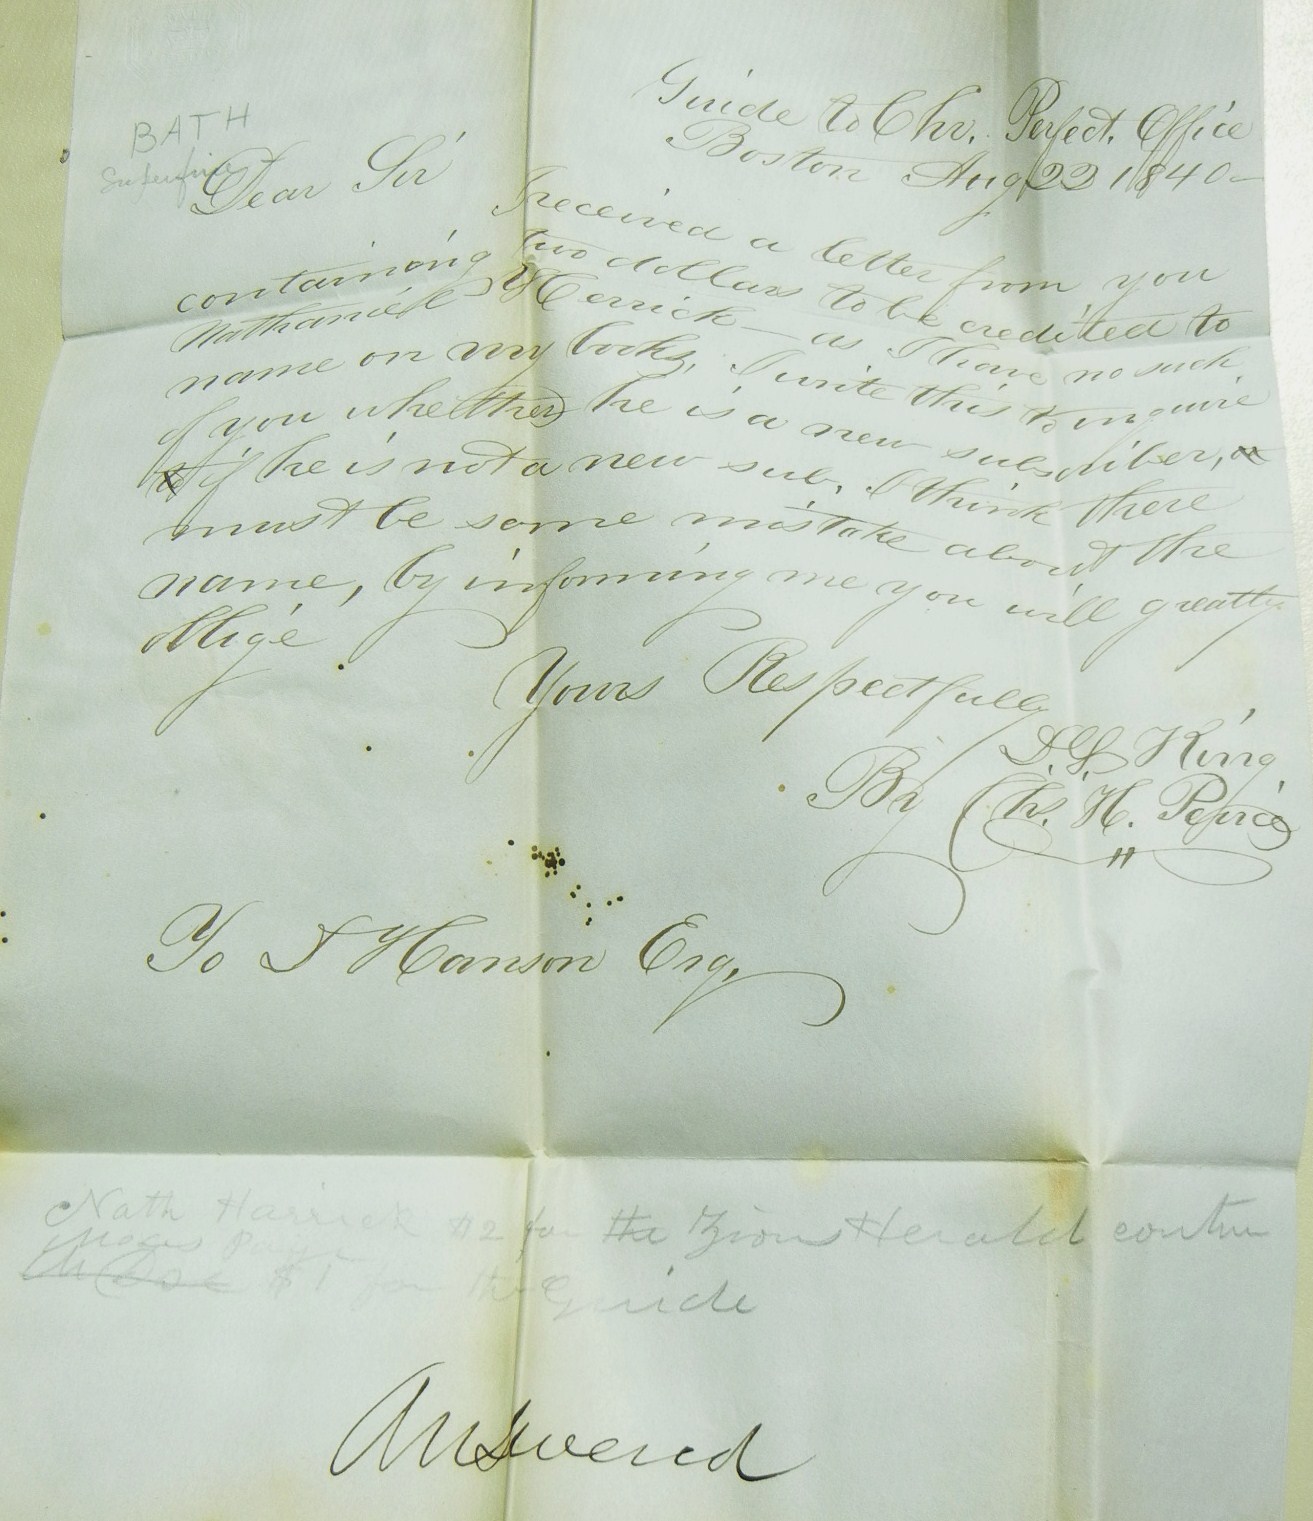 BATH
Superfine
Guide to Chr. Perfect. Office
Boston Aug 22 1840-
Dear Sir
I received a letter from you
containing two dollars to be credited to
Nathaniel Herrick - as I have no such
name on my books, I write this to inquire
of you whether he is a new subscriber, or
if he is not a new sub. I think there
must be some mistake about the
name, by informing me you will greatly
oblige
Yours Respectfully
D. S. King
By Chs. H. Peirce
"
To S Hanson Esq,
Nath Harrick $2 for the Zions Herald
Moses
$1 for the Guide
Answered